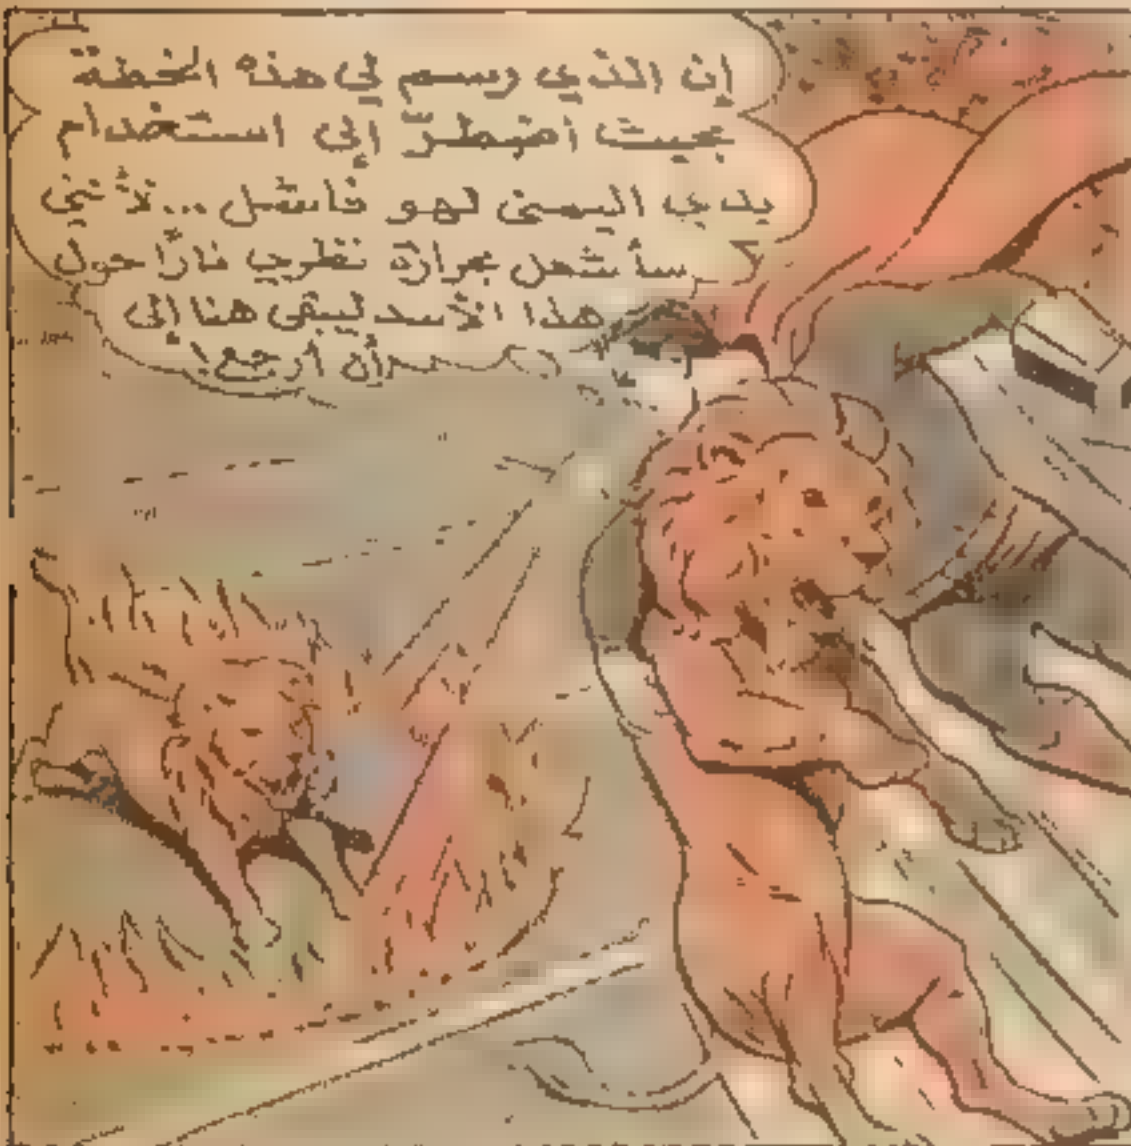 إن الذي رسم لي هذه الخطة
بحيث أضطرّ إلى استخدام
يدي اليمنى لهو فاشل ... لأنني
سأشعل بحرارة نظري نارًا حول
هذا الأسد ليبقى هنا إلى
أن أرجع!